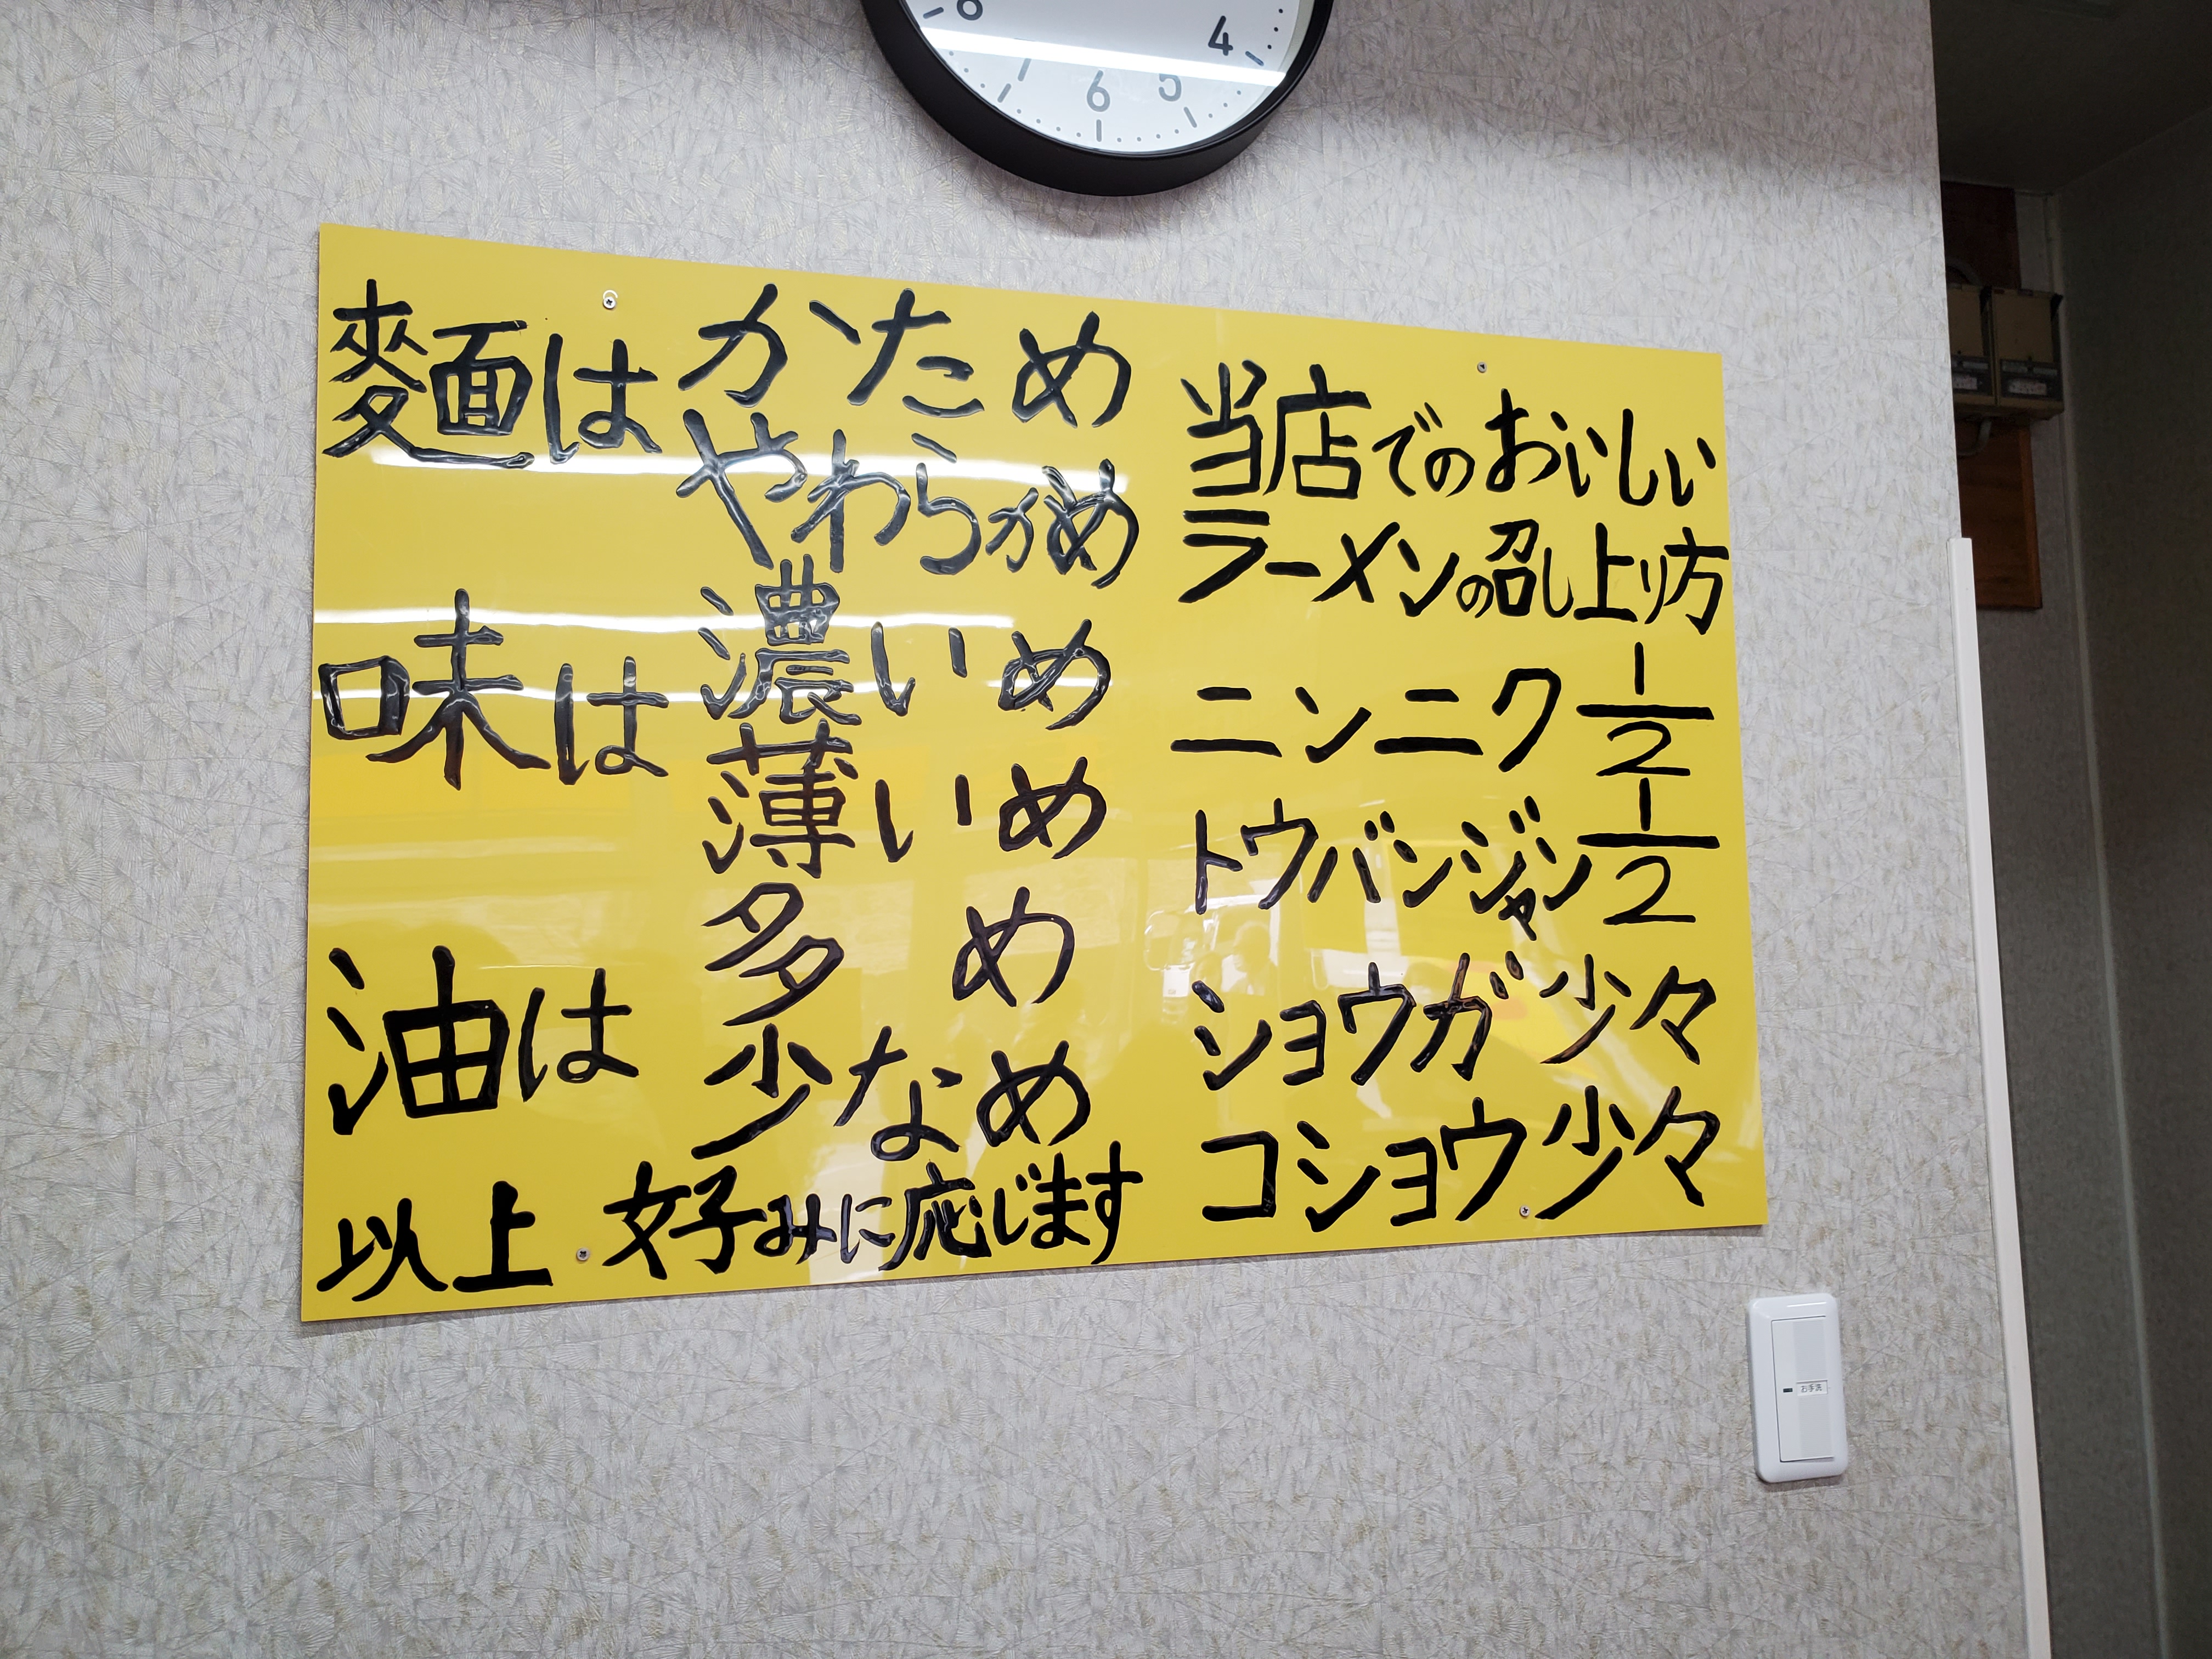 麺は かため
やわらかめ
味は 濃いめ
薄いめ
油は 多め
少なめ
以上 好みに応じます
当店でのおいしい
ラーメンの召し上り方
ニンニク 1/2
トウバンジャン 1/2
ショウガ 少々
コショウ 少々
8 7 6 5 4
お手洗